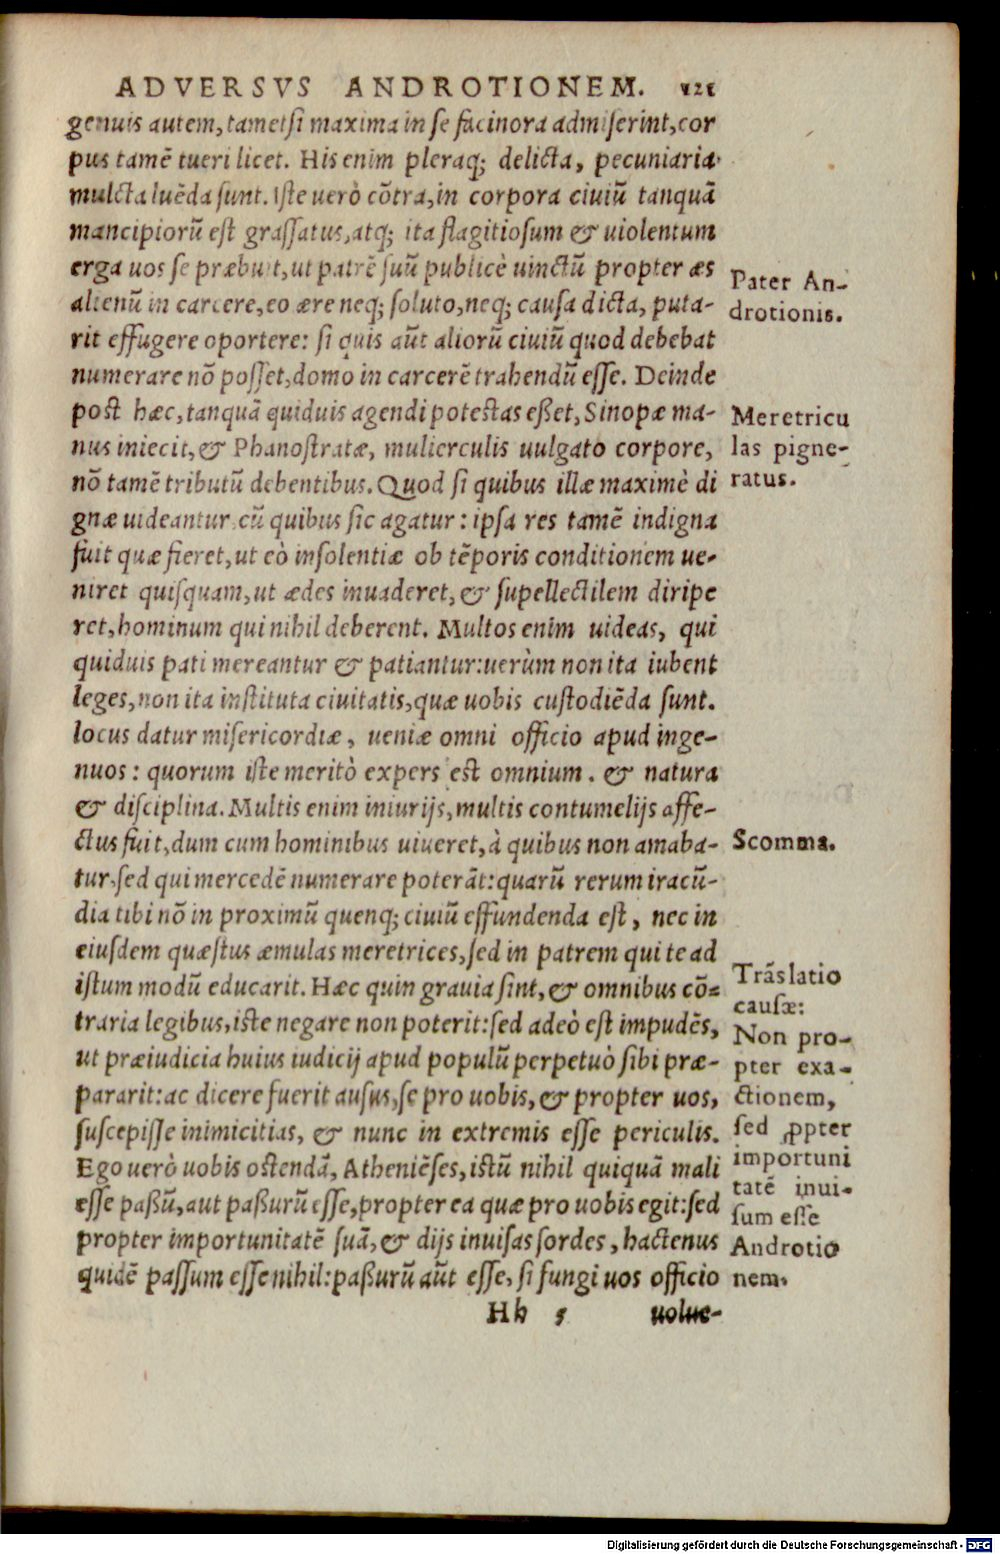 ADVERSVS ANDROTIONEM. 121
genuis autem, tametsi maxima in se facinora admiserint, cor
pus tamē tueri licet. His enim pleraq; delicta, pecuniaria
mulcta luēda sunt. Iste uerò cōtra, in corpora ciuiū tanquā
mancipiorū est grassatus, atq; ita flagitiosum & uiolentum
erga uos se præbuit, ut patrē suū publicè uinctū propter æs
alienū in carcere, eo ære neq; soluto, neq; causa dicta, puta-
rit effugere oportere: si quis aūt aliorū ciuiū quod debebat
numerare nō posset, domo in carcerē trahendū esse. Deinde
post hæc, tanquā quiduis agendi potestas eßet, Sinopæ ma-
nus iniecit, & Phanostratæ, mulierculis uulgato corpore,
nō tamē tributū debentibus. Quod si quibus illæ maximè di
gnæ uideantur cū quibus sic agatur: ipsa res tamē indigna
fuit quæ fieret, ut eò insolentiæ ob tēporis conditionem ue-
niret quisquam, ut ædes inuaderet, & supellectilem diripe
ret, hominum qui nihil deberent. Multos enim uideas, qui
quiduis pati mereantur & patiantur: uerùm non ita iubent
leges, non ita instituta ciuitatis, quæ uobis custodiēda sunt.
locus datur misericordiæ, ueniæ omni officio apud inge-
nuos: quorum iste meritò expers est omnium. & natura
& disciplina. Multis enim iniurijs, multis contumelijs affe-
ctus fuit, dum cum hominibus uiueret, à quibus non amaba-
tur, sed qui mercedē numerare poterāt: quarū rerum iracū-
dia tibi nō in proximū quenq; ciuiū effundenda est, nec in
eiusdem quæstus æmulas meretrices, sed in patrem qui te ad
istum modū educarit. Hæc quin grauia sint, & omnibus cō-
traria legibus, iste negare non poterit: sed adeò est impudēs,
ut præiudicia huius iudicij apud populū perpetuò sibi præ-
pararit: ac dicere fuerit ausus, se pro uobis, & propter uos,
suscepisse inimicitias, & nunc in extremis esse periculis.
Ego uerò uobis ostendā, Atheniēses, istū nihil quiquā mali
esse paßū, aut paßurū esse, propter ea quæ pro uobis egit: sed
propter importunitatē suā, & dijs inuisas sordes, hactenus
quidē passum esse nihil: paßurū aūt esse, si fungi uos officio
Hh 5 uolue-
Pater An-
drotionis.
Meretricu
las pigne-
ratus.
Scomma.
Trāslatio
causæ:
Non pro-
pter exa-
ctionem,
sed ꝓpter
importuni
tatē inui-
sum esse
Androtio
nem.
Digitalisierung gefördert durch die Deutsche Forschungsgemeinschaft - DFG